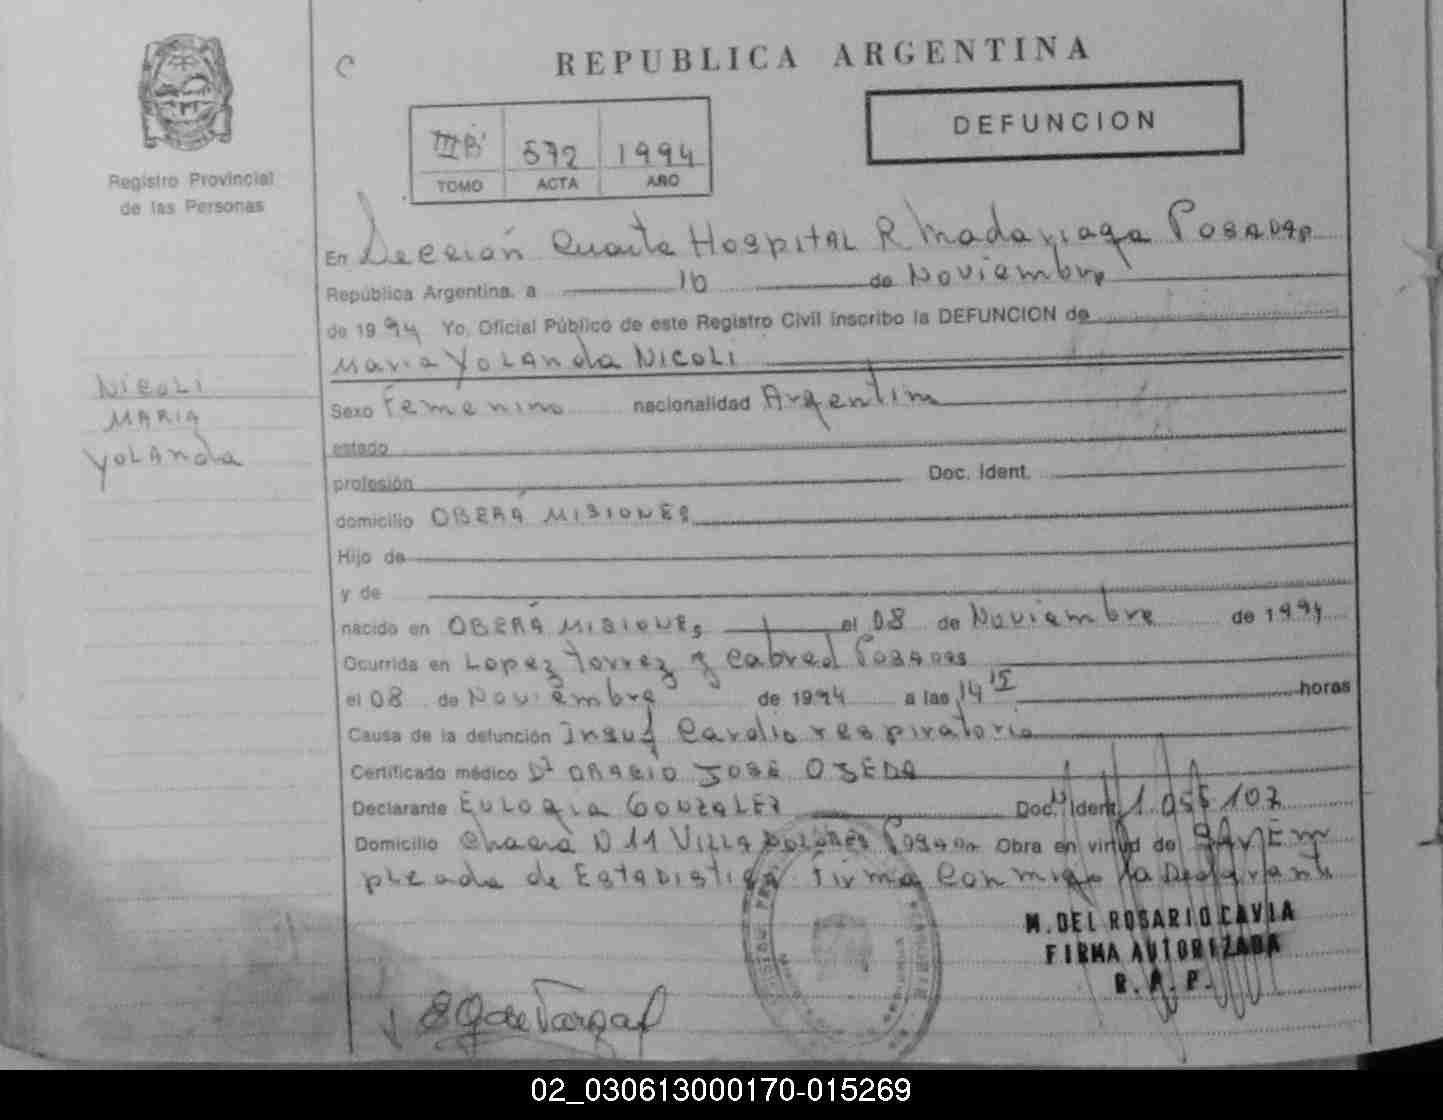 REPUBLICA ARGENTINA
DEFUNCION
572 1994
TOMO ACTA AÑO
Registro Provincial
de las Personas
En Sección Cuarta HOSPITAL R Madariaga POSADAS
República Argentina, a 10 de Noviembre
de 1994 Yo, Oficial Público de este Registro Civil inscribo la DEFUNCION de
Maria YOLANDA NICOLI
NICOLI
MARIA
YOLANDA
Sexo Femenino nacionalidad Argentina
estado
profesión Doc. Ident.
domicilio OBERÁ MISIONES
Hijo de
y de
nacido en OBERÁ MISIONES el 08 de Noviembre de 1994
Ocurrida en Lopez Torrez y Cabred POSADAS
el 08 de Noviembre de 1994 a las 14 15 horas
Causa de la defunción Insuf Cardio respiratoria
Certificado médico Dr ORACIO JOSE OJEDA
Declarante EULOGIA GONZALEZ Doc. Ident. 1.055 107
Domicilio Chacra N 11 VILLA DOLORES POSADAS Obra en virtud de Em
pleada de ESTADISTICA Firma Conmigo la Declarante
M. DEL ROSARIO CAVIA
FIRMA AUTORIZADA
R. P. P.
02_030613000170-015269